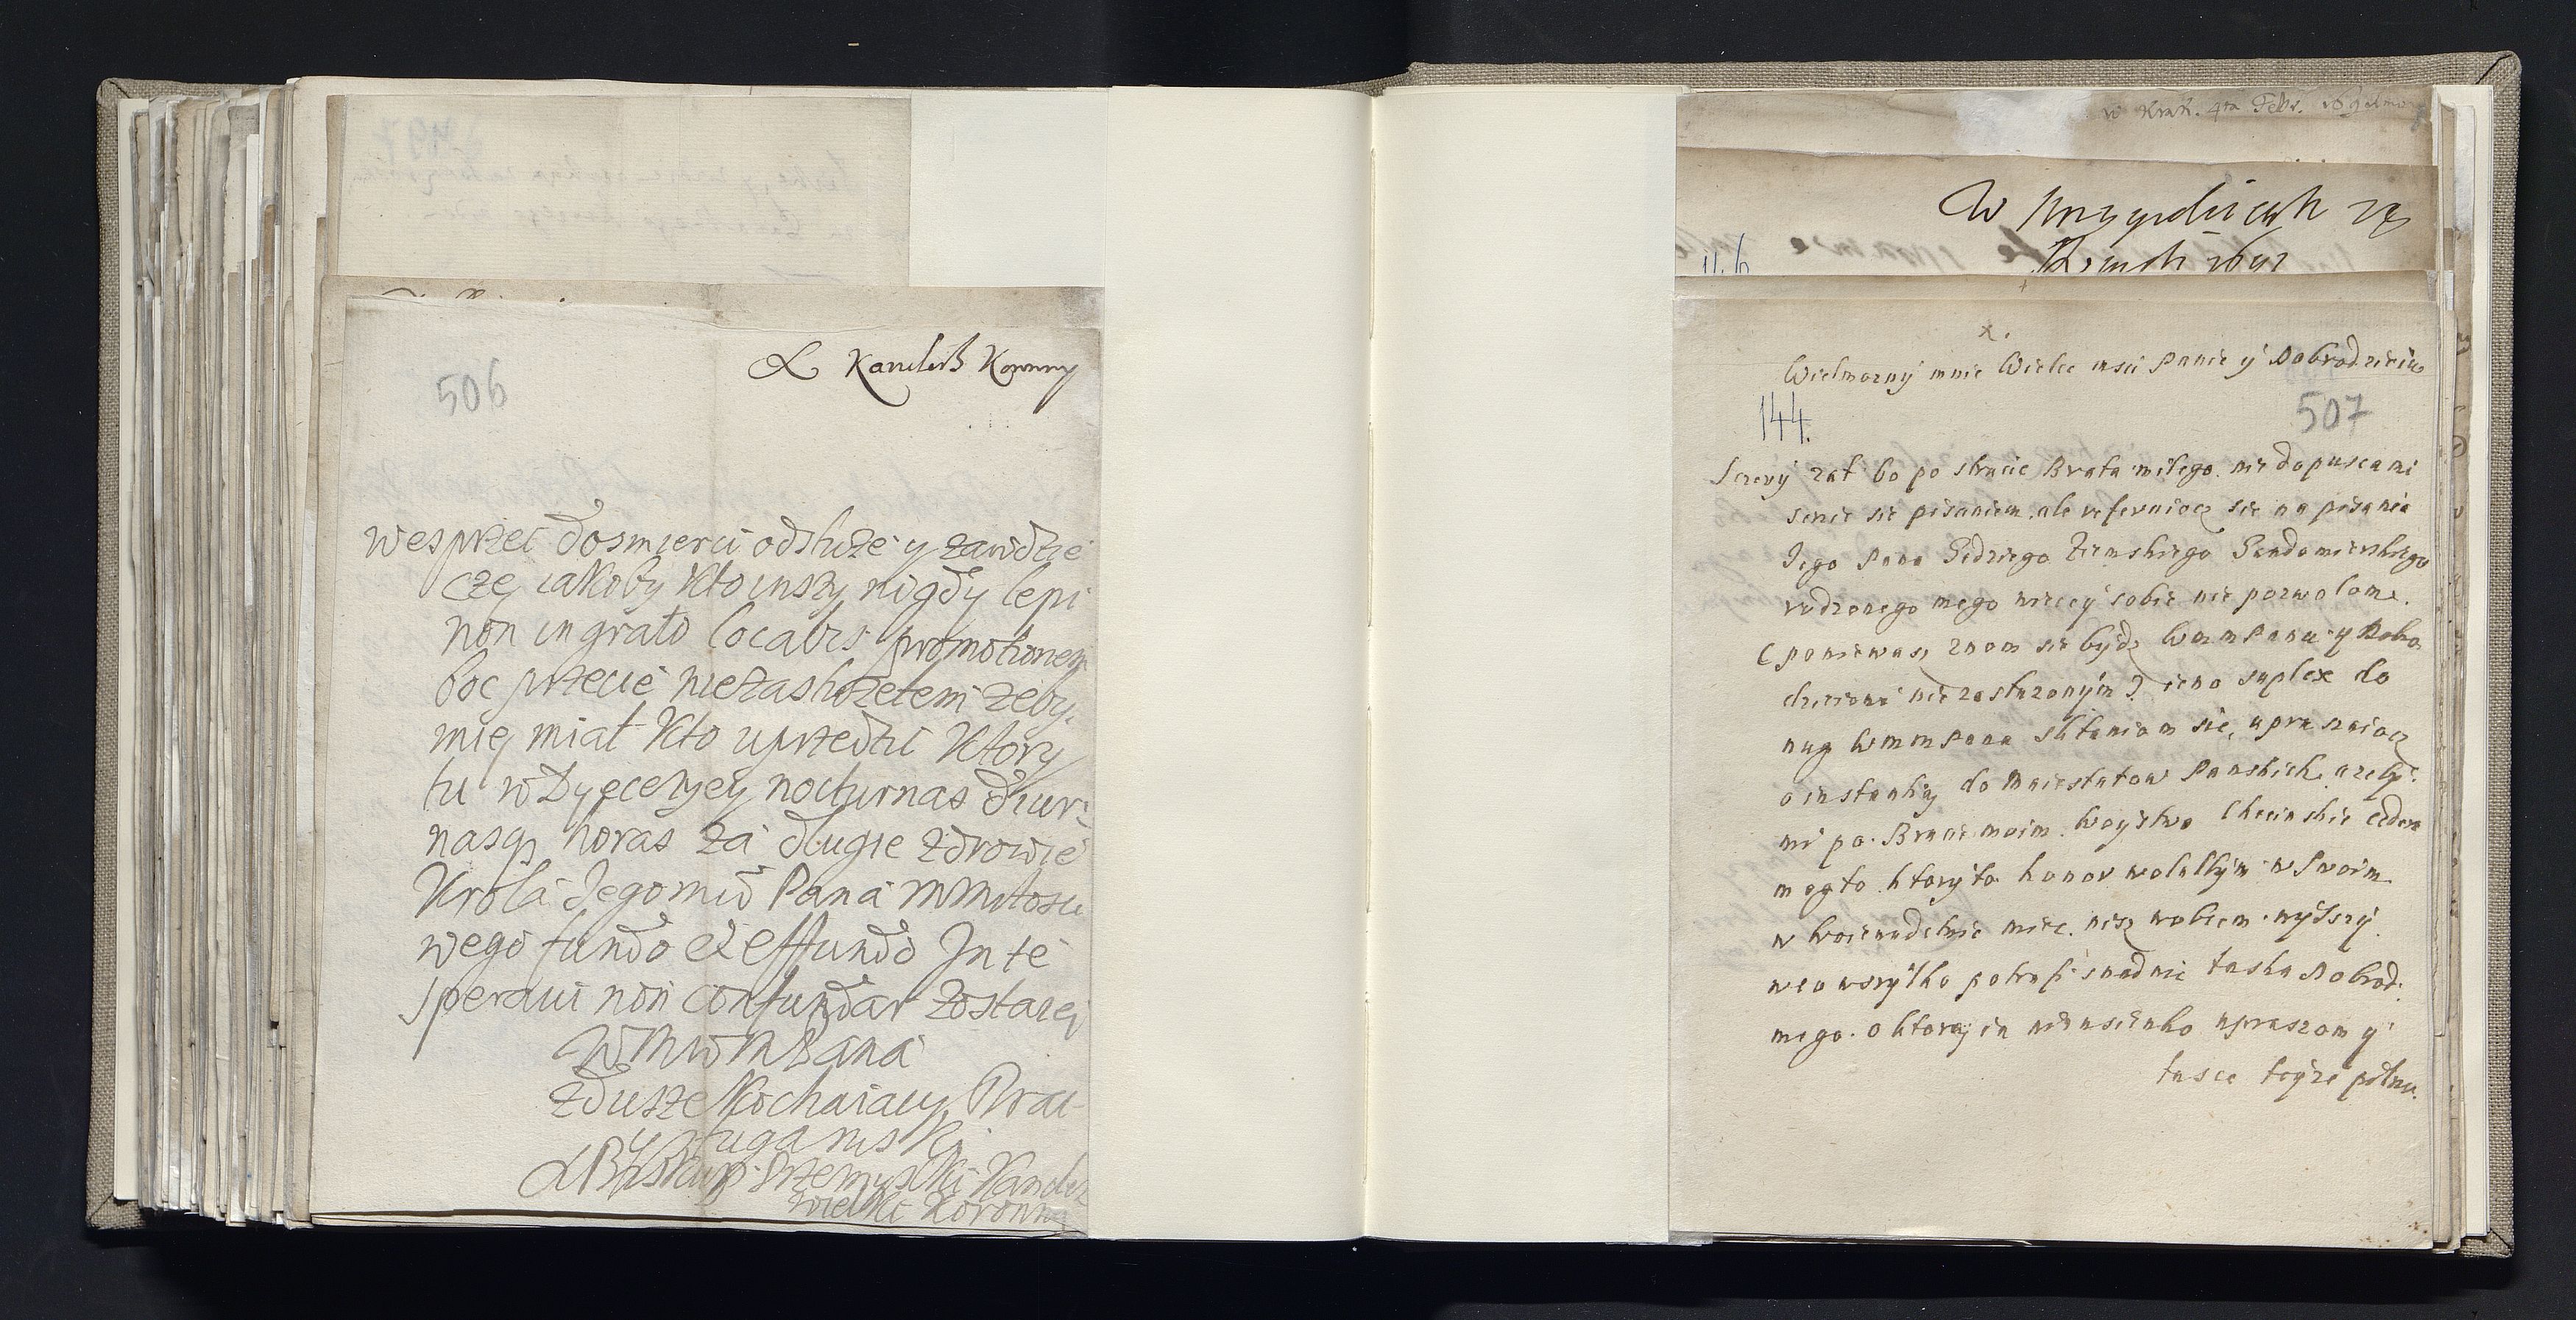 X Kanclerz Koronny
506
wesprzec dosmierci odsłuze y zawdzie
czę iakoby kto inszy nigdy lepi
non ingrato locabis promotionem
boc przecie niezasłuzełem zeby
mię miał kto uprzedzić ktory
tu w Dyecezyey nocturnas diur
nasq horas za długie zdrowie
Krola Jegomci Pana MMiłosci
wego fundo et effundo In te
speraui non confundar zostaię
WMWMPana
zdusze kochaiacy Brat
y sługa niski
X Biskup Przemyski Kanclerz
Wielki Koronny
w Krak. 4ta Febr.
W
1691
11. b
x.
Wielmozny mnie Wielce msci Panie y Dobrodzieiu
144.
507
Szczery zal bo po stracie Brata miłego. nie dopuscami
szerzic sie pisaniem. ale referuiocz sie na pisania
Jego Pana Sedziego Ziemskiego Sendomierskiego
rodzonego mego wiecey sobie nie pozwalame.
(poniewasz znam sie bydz WmmPanu y Dobro
dzieiowi niezasłuzonym) ieno suplex do
nug WmmPana skłaniam sie, upraszaiocz
o instantią do Maiestatow Panskich. azeby
mi po. Bracie moim. Woystwo Checinskie
mogto. ktory to honor wolałbym w Swoim
w Woiewodctwie miec. nisz wobcem. wyszszy
wco wszytko potrafi snadnie łaska Dobrod.
mego. o ktorą ia upraszam y
łasce teyze pilnie.